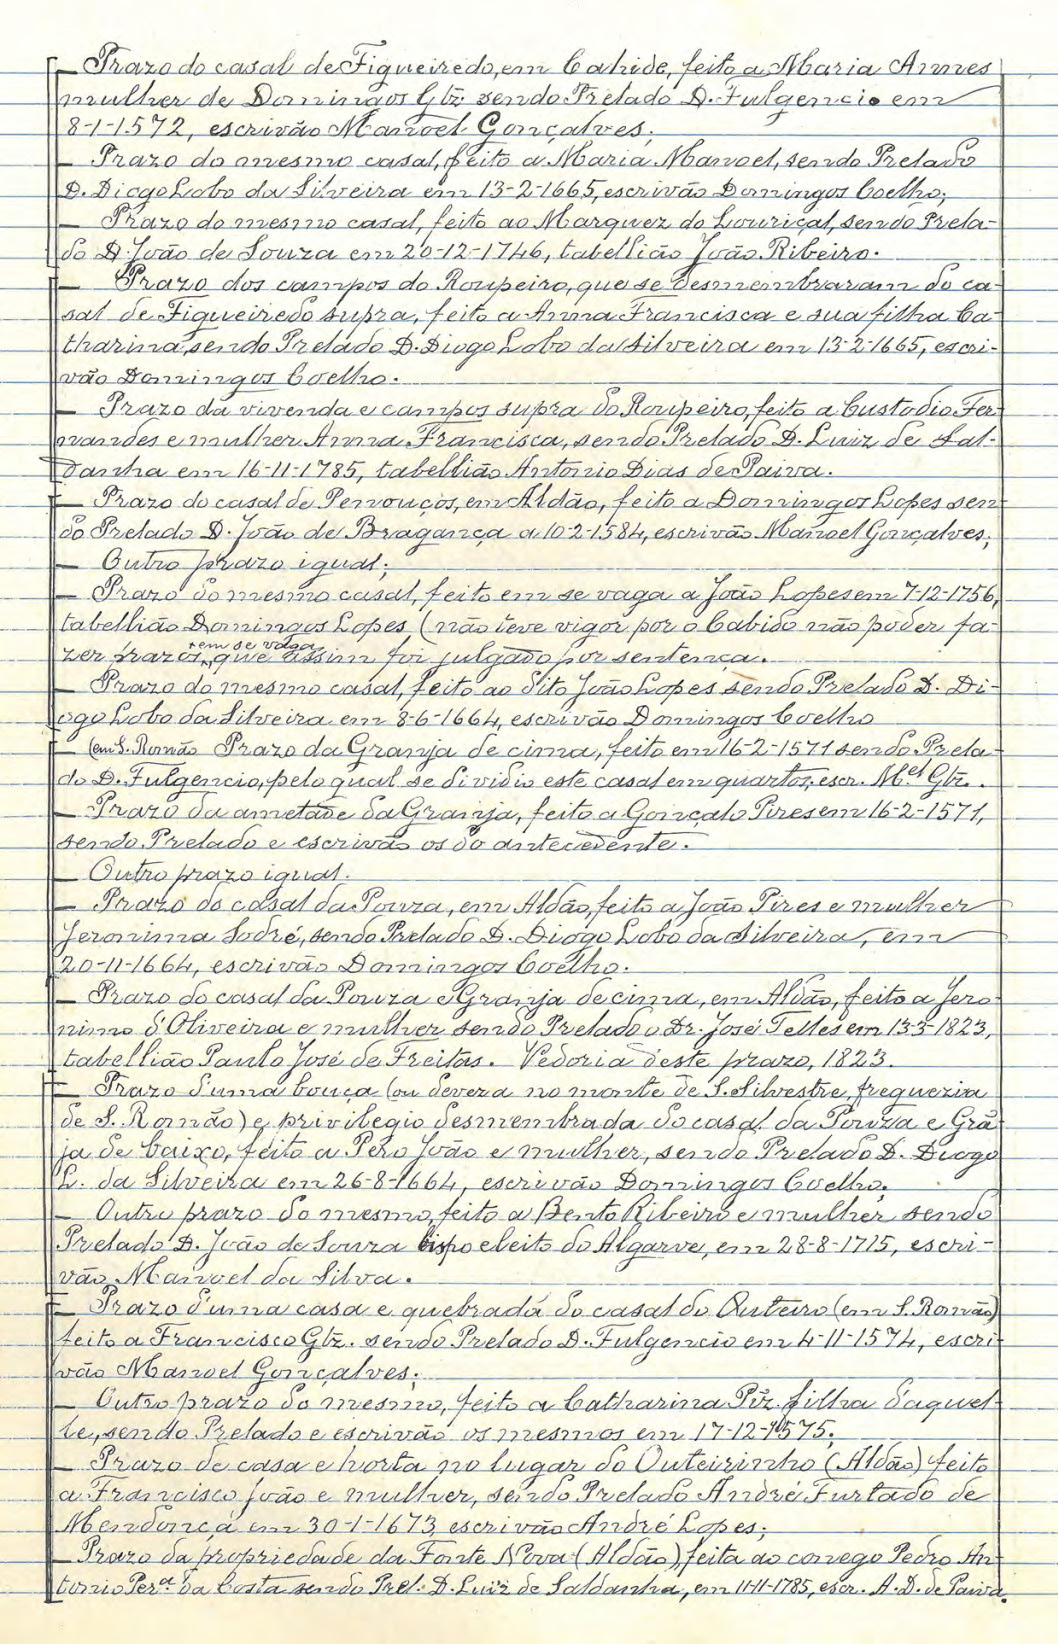 — Prazo do casal de Figueiredo, em Cahide, feito a Maria Annes
mulher de Domingos Glz. sendo Prelado D. Fulgencio em
8-1-1572, escrivão Manoel Gonçalves;
— Prazo do mesmo casal, feito a Maria Manoel, sendo Prelado
D. Diogo Lobo da Silveira em 13-2-1665, escrivão Domingos Coelho;
— Prazo do mesmo casal, feito ao Marquez do Louriçal, sendo Prela-
do D. João de Souza em 20-12-1746, tabellião João Ribeiro.
— Prazo dos campos do Roupeiro, que se desmembraram do ca-
sal de Figueiredo supra, feito a Anna Francisca e sua filha Ca-
tharina, sendo Prelado D. Diogo Lobo da Silveira em 13-2-1665, escri-
vão Domingos Coelho.
— Prazo da vivenda e campos supra do Roupeiro, feito a Custodio Fer-
nandes e mulher Anna Francisca, sendo Prelado D. Luiz de Sal-
danha em 16-11-1785, tabellião Antonio Dias de Paiva.
— Prazo do casal de Penouços, em Aldão, feito a Domingos Lopes sen-
do Prelado D. João de Bragança a 10-2-1584, escrivão Manoel Gonçalves;
— Outro prazo igual;
— Prazo do mesmo casal, feito em se vaga a João Lopes em 7-12-1756,
tabellião Domingos Lopes, (não teve vigor por o Cabido não poder fa-
zer prazos em se vaga, que assim foi julgado por sentença.
— Prazo do mesmo casal, feito ao dito João Lopes sendo Prelado D. Di-
ogo Lobo da Silveira em 8-6-1664, escrivão Domingos Coelho
— (em S. Romão Prazo da Granja de cima, feito em 16-2-1571 sendo Prela-
do D. Fulgencio, pelo qual se dividio este casal em quartos, escr. M.el Glz.
— Prazo da ametade da Granja, feito a Gonçalo Pires em 16-2-1571,
sendo Prelado e escrivão os do antecedente.
— Outro prazo igual.
— Prazo do casal da Pouza, em Aldão, feito a João Pires e mulher
Jeronima Sodré, sendo Prelado D. Diogo Lobo da Silveira, em
20-11-1664, escrivão Domingos Coelho.
— Prazo do casal da Pouza e Granja de cima, em Aldão, feito a Jero-
nimo d'Oliveira e mulher sendo Prelado o Dr. José Telles em 13-3-1823,
tabellião Paulo José de Freitas. Vedoria deste prazo, 1823.
— Prazo d'uma bouça (ou deveza no monte de S. Silvestre, freguezia
de S. Romão) e privilegio desmembrada do casal da Pouza e Grã-
ja de baixo, feito a Pero João e mulher, sendo Prelado D. Diogo
L. da Silveira em 26-8-1664, escrivão Domingos Coelho;
— Outro prazo do mesmo, feito a Bento Ribeiro e mulher sendo
Prelado D. João de Souza bispo eleito do Algarve, em 28-8-1715, escri-
vão Manoel da Silva.
— Prazo d'uma casa e quebrada do casal do Outeiro (em S. Romão)
feito a Francisco Glz. sendo Prelado D. Fulgencio em 4-11-1574, escri-
vão Manoel Gonçalves;
— Outro prazo do mesmo, feito a Catharina Piz. filha daquel-
le, sendo Prelado e escrivão os mesmos em 17-12-1575;
— Prazo de casa e horta no lugar do Outeirinho (Aldão) feito
a Francisco João e mulher, sendo Prelado André Furtado de
Mendonça em 30-1-1673, escrivão André Lopes;
— Prazo da propriedade da Fonte Nova (Aldão) feita ao conego Pedro An-
tonio Per.a da Costa sendo Prel. D. Luiz de Saldanha, em 11-11-1785, escr. A. D. de Paiva.